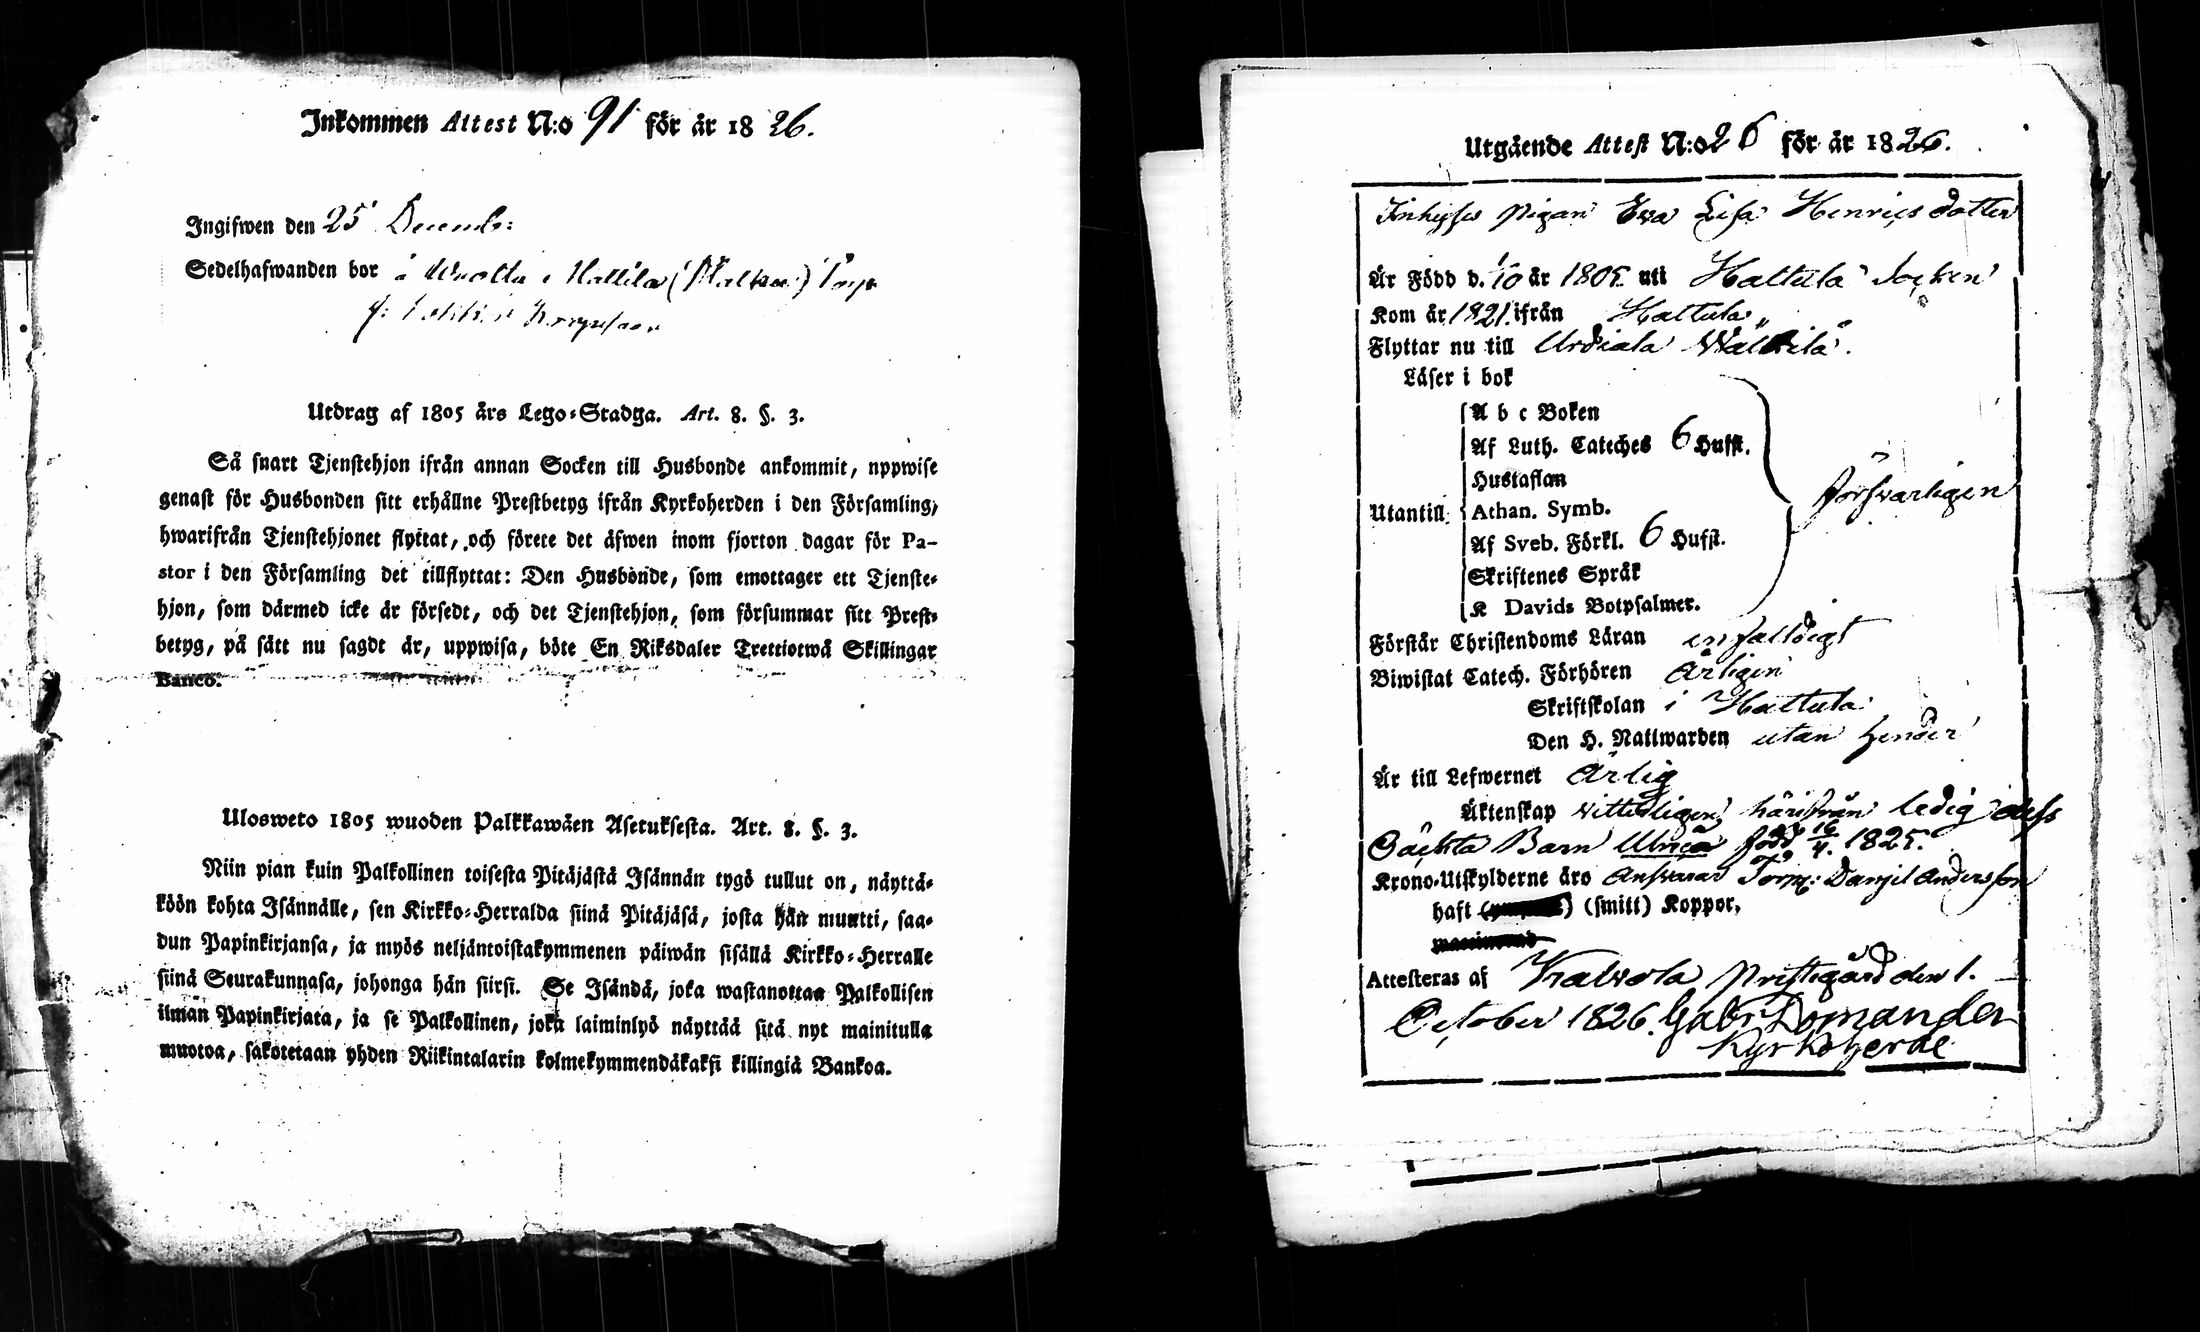 Inkommen Attest N:o 91 för år 1826.
Ingifwen den 25 Decemb:
Sedelhafwanden bor å
Utdrag af 1805 års Lego-Stadga. Art. 8. §. 3.
Så snart Tjenstehjon ifrån annan Socken till Husbonde ankommit, uppwise
genast för Husbonden sitt erhållne Prestbetyg ifrån Kyrkoherden i den Församling,
hwarifrån Tjenstehjonet flyttat, och förete det äfwen inom fjorton dagar för Pa-
stor i den Församling det tillflyttat: Den Husbonde, som emottager ett Tjenste-
hjon, som därmed icke är försedt, och det Tjenstehjon, som försummar sitt Prest-
betyg, på sätt nu sagdt är, uppwisa, böte En Riksdaler Trettiotwå Skillingar
Banco.
Ulosweto 1805 wuoden Palkkawäen Asetuksesta. Art. 8. §. 3.
Niin pian kuin Palkollinen toisesta Pitäjästä Isännän tygö tullut on, näyttä-
köön kohta Isännälle, sen Kirkko-Herralda siinä Pitäjäsä, josta hän muutti, saa-
dun Papinkirjansa, ja myös neljäntoistakymmenen päiwän sisällä Kirkko-Herralle
siinä Seurakunnasa, johonga hän siirsi. Se Isändä, joka wastanottaa Palkollisen
ilman Papinkirjata, ja se Palkollinen, joka laiminlyö näyttää sitä nyt mainitulla
muotoa, sakotetaan yhden Riikintalarin kolmekymmendäkaksi killingiä Bankoa.
Utgående Attest N:o 26 för år 1826.
Inhyses pigan Eva Lisa Henricsdotter
Är Född d. 1/10 år 1805. uti Hattula Socken
Kom år 1821. ifrån Hattula
Flyttar nu till Urdiala
Läser i bok
A b c Boken
Af Luth. Cateches 6 Hufst.
Hustaflan
Utantill Athan. Symb.
försvarligen
Af Sveb. Förkl. 6 Hufst.
Skriftenes Språk
K Davids Botpsalmer.
Förstår Christendoms Läran enfaldigt
Biwistat Catech. Förhören årligen
Skriftskolan i Hattula
Den H. Nattwarden utan hinder
Är till Lefwernet ärlig
Äktenskap vitterligen härifrån ledig dess
Oäckta Barn Ulrica född 16/4. 1825.
Krono-Utskylderne äro ansvarar Torp: Danjel Andersson
haft (smitt) Koppor.
Attesteras af Kalvola Prestegård den 1.
October 1826. Gabr Domander
Kyrkoherde